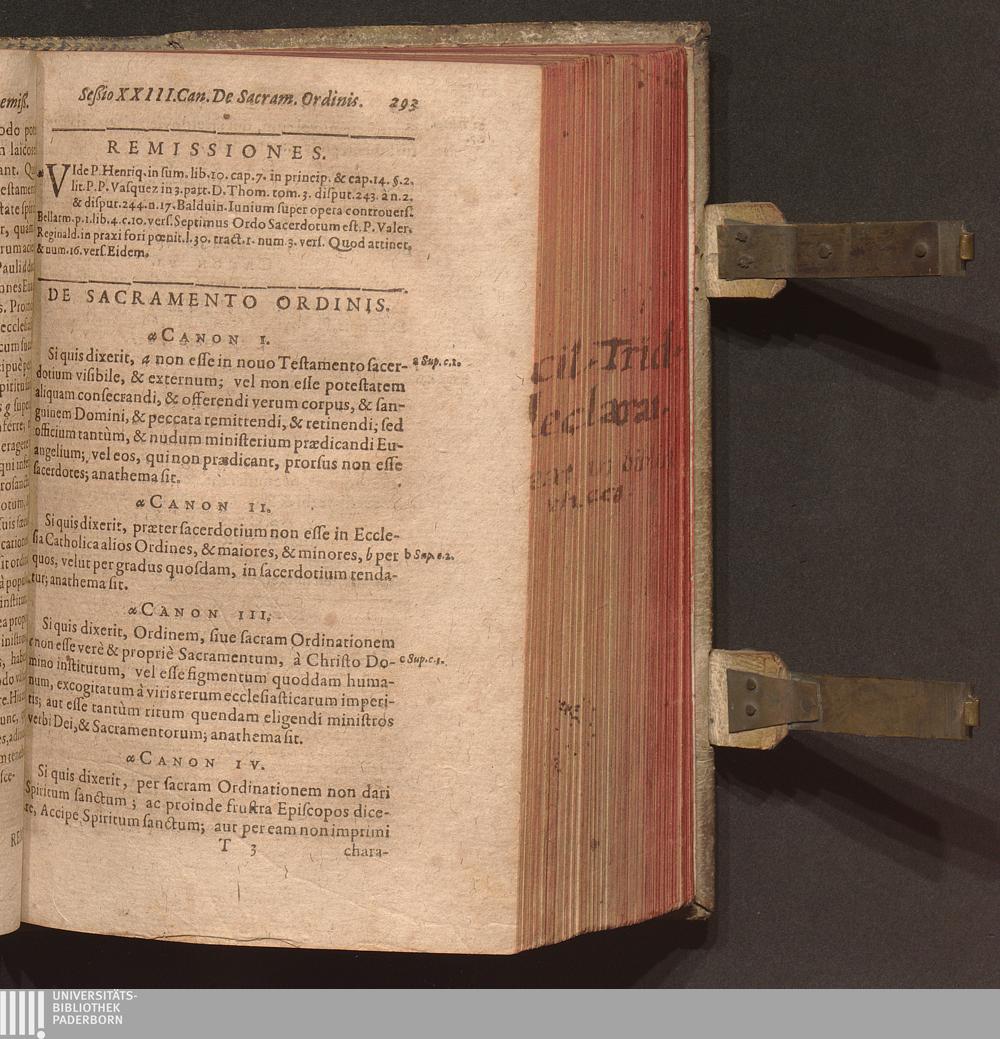 Sessio XXIII. Can. De Sacram. Ordinis. 293
REMISSIONES.
a VIde P. Henriq. in sum. lib. 10. cap. 7. in princip. & cap. 14. §. 2.
lit. P. P. Vasquez in 3. part. D. Thom. tom. 3. disput. 243. à n. 2.
& disput. 244. n. 17. Balduin. Iunium super opera controuers.
Bellarm. p. 1. lib. 4. c. 10. vers. Septimus Ordo Sacerdotum est. P. Valer.
Reginald. in praxi fori pœnit. l. 30. tract. 1. num 3. vers. Quod attinet,
& num. 16. vers. Eidem.
DE SACRAMENTO ORDINIS.
a CANON I.
Si quis dixerit, a non esse in nouo Testamento sacer- a Sup. c. 1.
dotium visibile, & externum; vel non esse potestatem
aliquam consecrandi, & offerendi verum corpus, & san-
guinem Domini, & peccata remittendi, & retinendi; sed
officium tantùm, & nudum ministerium prædicandi Eu-
angelium; vel eos, qui non prædicant, prorsus non esse
sacerdotes; anathema sit.
a CANON II.
Si quis dixerit, præter sacerdotium non esse in Eccle-
sia Catholica alios Ordines, & maiores, & minores, b per b Sup. c. 2.
quos, velut per gradus quosdam, in sacerdotium tenda-
tur; anathema sit.
a CANON III.
Si quis dixerit, Ordinem, siue sacram Ordinationem
c non esse verè & propriè Sacramentum, à Christo Do- c Sup. c. 3.
mino institutum, vel esse figmentum quoddam huma-
num, excogitatum à viris rerum ecclesiasticarum imperi-
tis; aut esse tantùm ritum quendam eligendi ministros
verbi Dei, & Sacramentorum; anathema sit.
a CANON IV.
Si quis dixerit, per sacram Ordinationem non dari
Spiritum sanctum; ac proinde frustra Episcopos dice-
re, Accipe Spiritum sanctum; aut per eam non imprimi
T 3 chara-
cil. Trid.
declarat.
UNIVERSITÄTS-
BIBLIOTHEK
PADERBORN